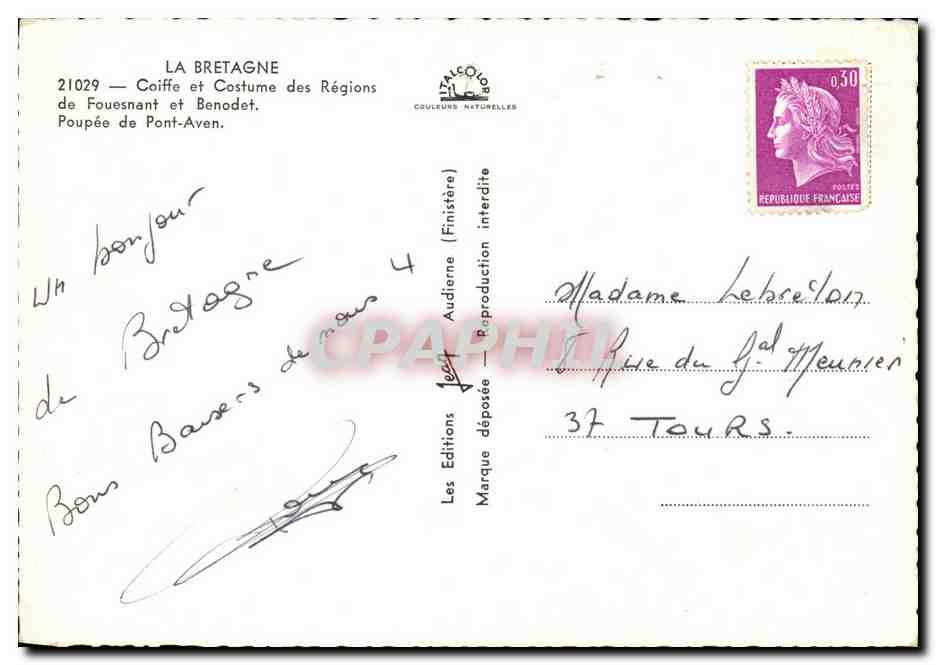 LA BRETAGNE
21029 — Coiffe et Costume des Régions
de Fouesnant et Benodet.
Poupée de Pont-Aven.
ITALCOLOR
COULEURS NATURELLES
0,30
POSTES
REPUBLIQUE FRANÇAISE
Un bonjour
de Bretagne
Bons Baisers de nous 4
Les Editions Jean Audierne (Finistère)
Marque déposée — Reproduction interdite
Madame Lebrélon
Rue du Gal Meunier
37 TOURS.
CPAPHIL